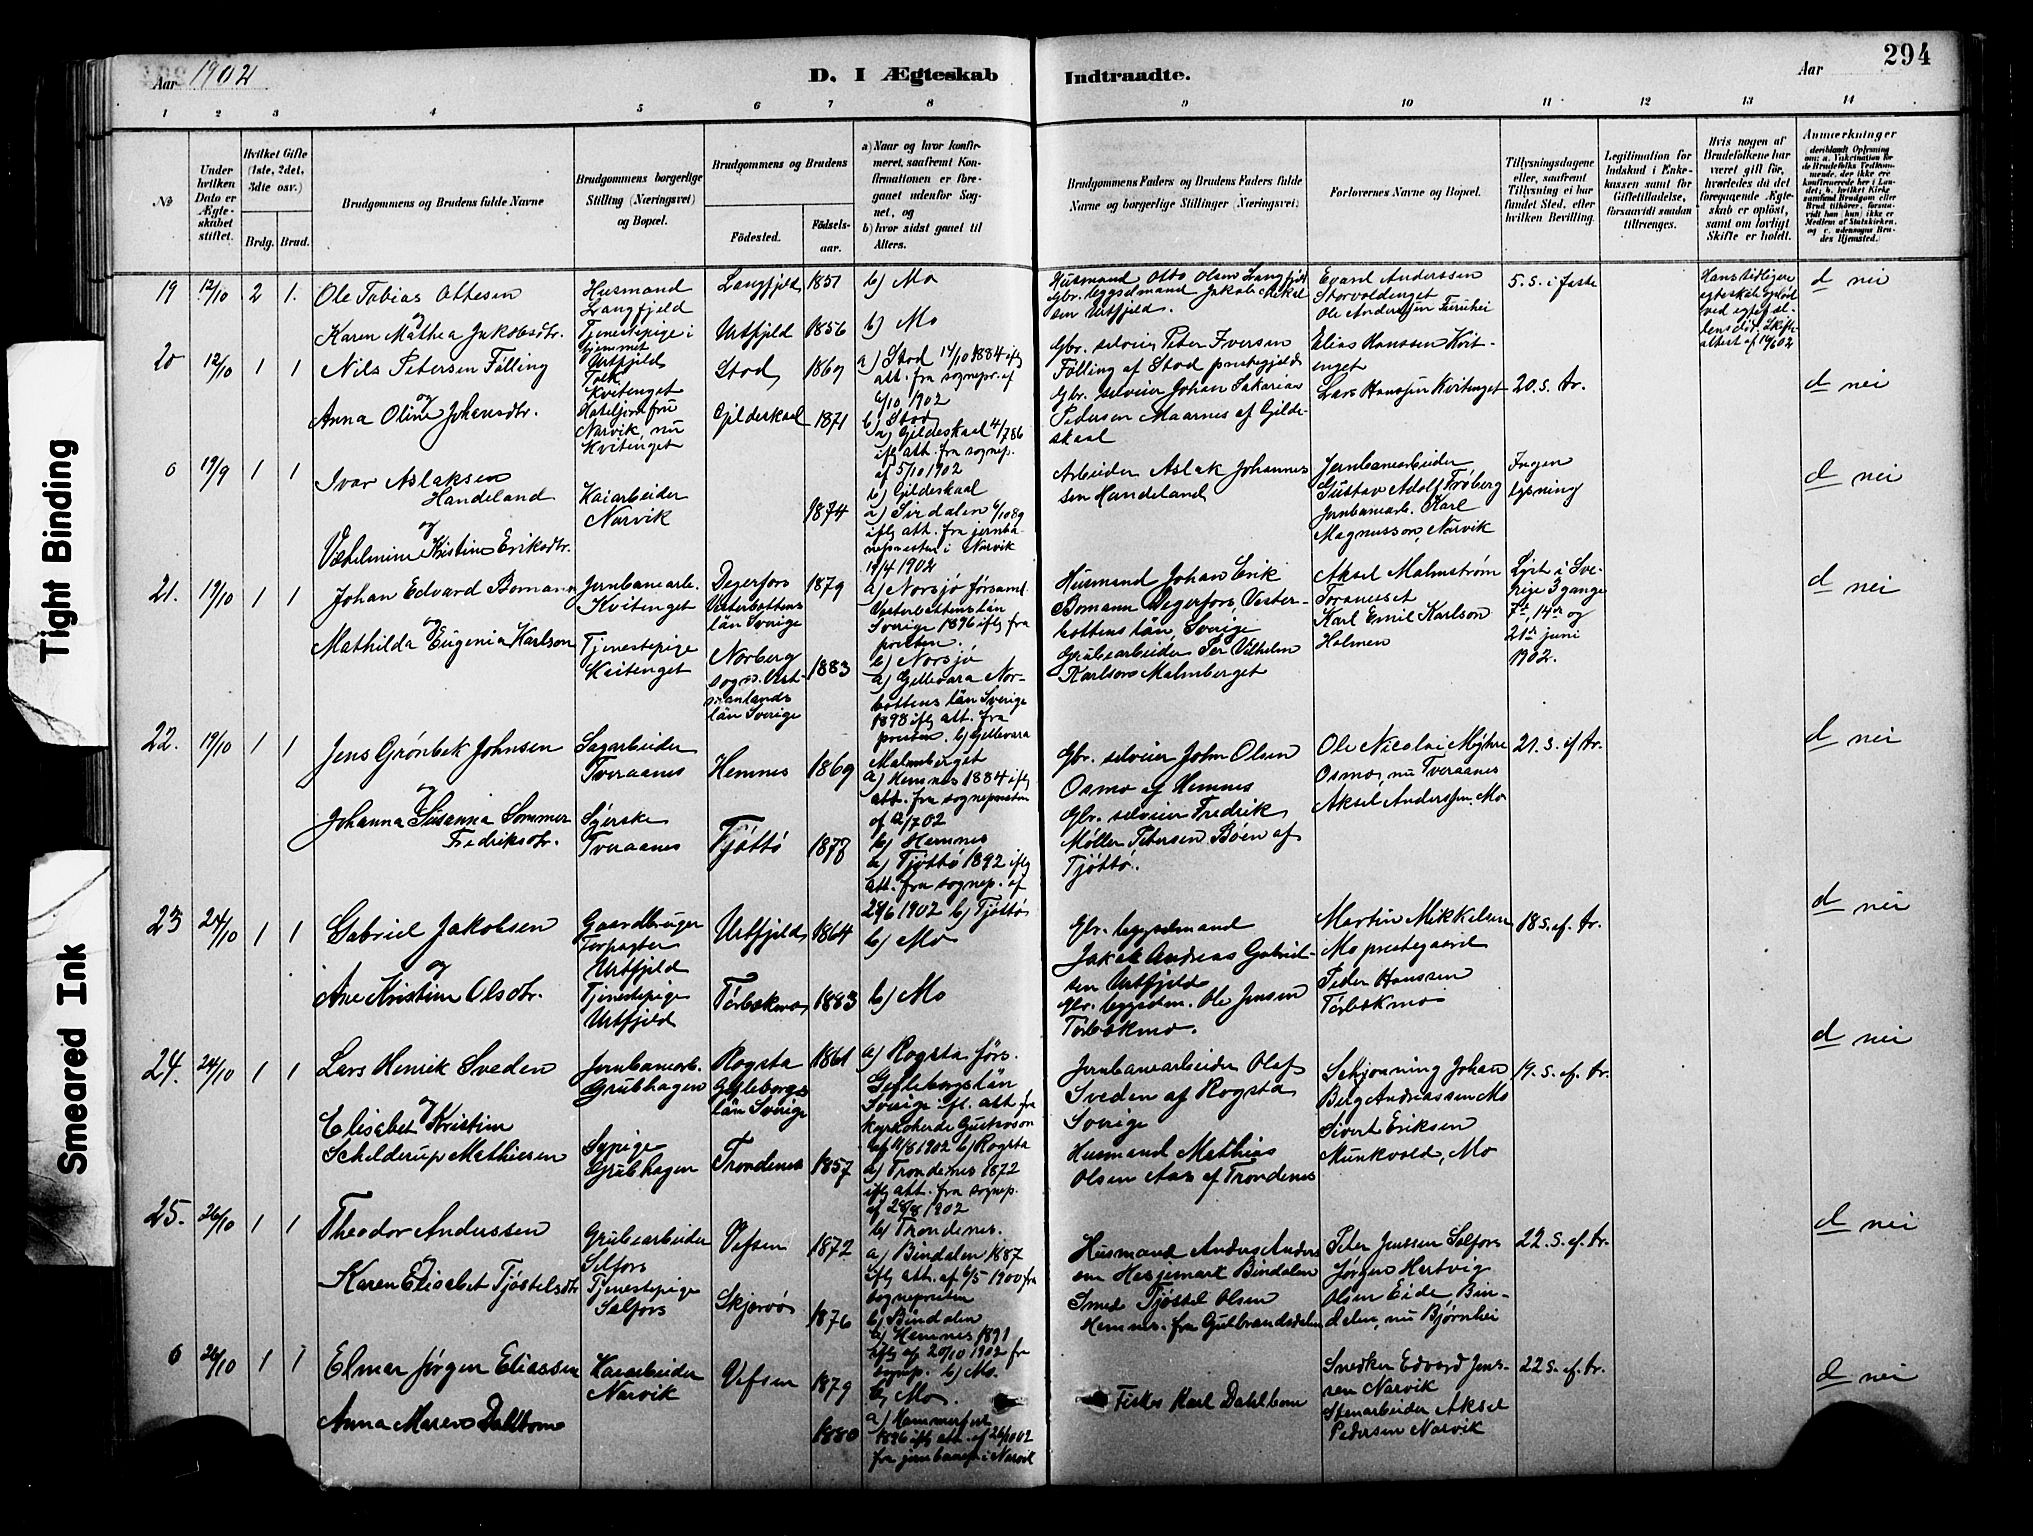 294
Aar 1902
D. I Ægteskab Indtraadte.
Aar
1 2 3 4 5 6 7 8 9 10 11 12 13 14
No
Under hvilken Dato er Ægteskabet stiftet.
Hvilket Gifte (1ste, 2det, 3die osv.)
Brdg. Brud.
Brudgommens og Brudens fulde Navne
Brudgommens borgerlige Stilling (Næringsvei) og Bopæl.
Brudgommens og Brudens
Fødested. Fødselsaar.
a) Naar og hvor konfirmeret, saafremt Konfirmationen er foregaaet udenfor Sognet, og
b) hvor sidst gaaet til Alters.
Brudgommens Faders og Brudens Faders fulde Navne og borgerlige Stillinger (Næringsvei)
Forlovernes Navne og Bopæl.
Tillysningsdagene eller, saafremt Tillysning ei har fundet Sted, efter hvilken Bevilling.
Legitimation for Indskud i Enkekassen samt for Giftetilladelse, forsaavidt saadan tiltrænges.
Hvis nogen af Brudefolkene har været gift før, hvorledes da det foregaaende Ægteskab er opløst, samt om lovligt Skifte er holdt.
Anmærkninger
19 12/10 2 1. Ole Tobias Ottesen
Husmand Langfjeld
Langfjeld 1851 b) Mo
Husmand Otto Olsen Langfjeld
Gbr. byggselmand Jakob Mikkelsen Urtfjeld.
Evard Anderssen Storvoldenget
Ole Anderssen Furuhei
5. s. i faste
Hans tidligere egteskab opløst ved egtef.
d nei
og
Karen Mathea Jakobsdtr.
Tjenestepige i hjemmet Urtfjeld
Urtfjeld 1856 b) Mo
20 12/10 1 1 Nils Petersen Følling
Kvitenget
Stod 1869
a) Stod 14/10 1884 ifg att. fra sognepr. af 6/10 1902
b) Stod
Gbr. selveier Peter Iversen Følling af Stod prestegjeld
Gbr. selveier Johan Sakarias Pedersen Maarnes af Gildeskaal
Elias Hanssen Kvitenget
Lars Hanssen Kvitenget
20. s. Tr.
d nei
og
Anna Oline Johansdtr.
Narvik nu Kvitenget
Gildeskaal 1871
a) Gildeskaal 4/786 ifl att. fra sognep. af 5/10 1902
b) Gildeskaal
0 19/9 1 1 Ivar Aslaksen Handeland
Kaiarbeider Narvik
1874
a) Sirdalen 6/1089 iflg att. fra jernbanepresten i Narvik 19/4 1902
Arbeider Aslak Johannessen Handeland
Jernbanearbeider Gustav Adolf Frøberg
Jernbanearb. Karl Magnusson, Narvik
Ingen lysning
d nei
og
Vilhelmine Kristine Eriksdtr.
21. 19/10 1 1 Johan Edvard Bomann
Jernbanearb. Kvitenget
Degerfors Vesterbottens län Sverige
1879
a) Norsjö församl. Vesterbottens län Sverige 1896 iflg fra presten.
b) Norsjö
Husmand Johan Erik Bomann Degerfors, Vesterbottens län, Sverige
Grubearbeider Per Vilhelm Karlson Malmberget
Aksel Malmstrøm Toraneset
Karl Emil Karlson Holmen
Lyst i Sverige 3 gange 7de, 14de og 21de juni 1902.
d nei
og
Mathilda Eugenia Karlson
Tjenestepige Kvitenget
Norberg sogn. Vestmanlands län Sverige
1883
a) Gellevara Norbottens län Sverige 1898 iflg att. fra presten. b) Gellevara Malmberget
22. 19/10 1 1 Jens Grønbek Johnsen
Sagarbeider Tveraanes
Hemnes 1869
a) Hemnes 1884 iflg att. fra sognepresten af 2/7 02
b) Hemnes
Gbr. selveier John Olsen Osmo af Hemnes
Gbr. selveier Fredrik Møller Petersen Bøen af Tjøttø.
Ole Nicolai Myhre Osmo, nu Tveraanes
Aksel Anderssen, Mo
21. s. ef Tr.
d nei
og
Johanna Susanna Sommer Fredriksdtr.
Syerske Tveraanes
Tjøttø 1877
a) Tjøttø 1892 iflg att. fra sognep. af 28/6 1902 b) Tjøttø
23 24/10 1 1 Gabriel Jakobsen
Gaardbruger Forpagter Urtfjeld
Urtfjeld 1864 b) Mo
Gbr. byggselmand Jakob Andreas Gabrielsen Urtfjeld
Gbr. byggselm. Ole Jensen Tørbekmo.
Martin Mikkelsen Mo prestegaard
Peder Hanssen Tørbekmo
18 s. ef. Tr.
d nei
og
Ane Kristine Olsdtr.
Tjenestepige Urtfjeld
Tørbekmo 1883 b) Mo
24. 24/10 1 1 Lars Henrik Sveden
Jernbanearb. Grubhagen
Rogsta Gefleborgs län Sverige
1861
a) Rogsta förs. Gefleborgs län Sverige ifl. att fra kyrkoherde Gustavson af 11/8 1902 b) Rogsta
Jernbanearbeider Olof Sveden af Rogsta Sverige
Husmand Mathias Olsen Aas af Trondenes
Skjønning Johan Berg Andreassen Mo
Sivert Eriksen Munkvold, Mo
19. s. ef. Tr.
d nei
og
Elisabet Kristine Schilderup Mathiesen
Sypige Grubhagen
Trondenes 1857
a) Trondenes 1872 iflg att. fra sognep. af 28/8 1902
b) Trondenes.
25. 26/10 1 1 Theodor Anderssen
Grubearbeider Selfors
Vefsen 1872
a) Bindalen 1887 iflg att. af 6/5 1900 fra sognepresten
b) Bindalen
Husmand Anders Anderssen Hesjemark Bindalen
Smed Tjøstel Olsen Hemnes. fra Gulbrandsdalen
Peter Jenssen Selfors
Jørgen Hertvig Olsen Eide Bindalen, nu Bjørnhei
22. s. ef. Tr.
d nei
og
Karen Elisabet Tjøstelsdtr
Tjenestepige Selfors
Skjervø 1876
a) Hemnes 1891 iflg af 20/10 1902 fra sognep. b) Mo.
0 26/10 1 1 Elmar Jørgen Eliassen
Kaiarbeider Narvik
Vefsen 1879
b) Mo
Snedker Edvard Jenssen Narvik
Stenarbeider Aksel Pedersen Narvik
22 s. ef. Tr.
d nei
Anna Maren Dahlbom
1880
a) Hammerfest 1896 iflg att. af 26/1002 fra jernbanep. i Narvik
Fisker Karl Dahlbom
Tight Binding
Smeared Ink